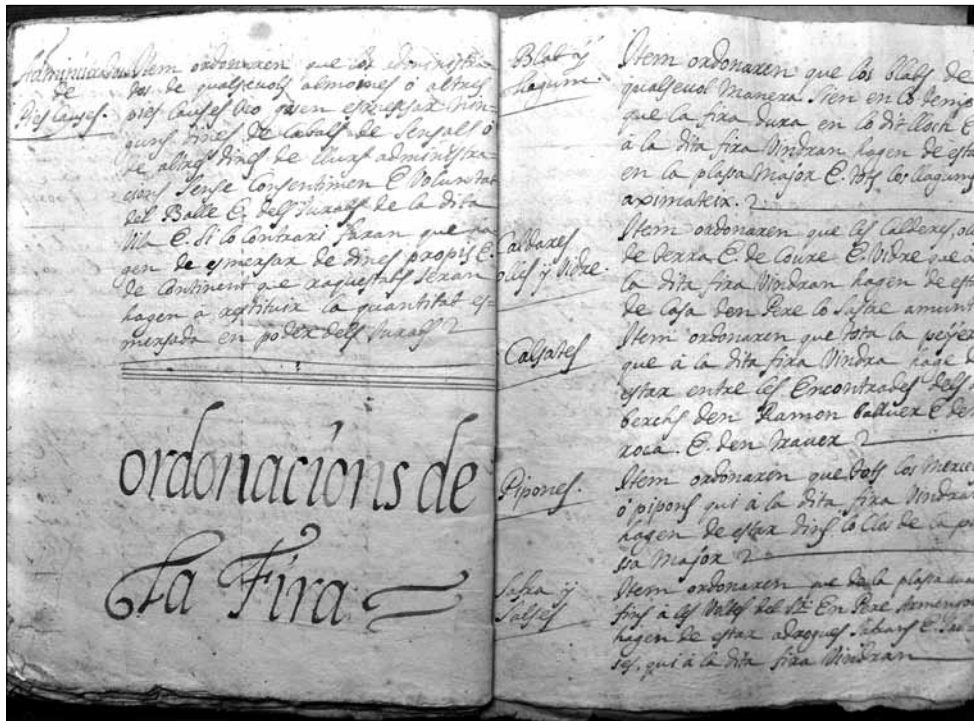 Administradors
de
Pies Causes.
Item ordonaren que los administra
dos de qualsevols almoines ó altres
pies causes no gosen esmersar nin-
guns diners de Cabals de Sensals ó
de altres diners de llurs administra
cions Sense Consentimen E Voluntat
del Balle E. dels Jurats de la dita
Vila E. Si lo Contrari faran que ha
gen de esmersar de dines propis E.
de Continent que raquestats seran
hagen a restituir la quantitat es-
mersada en poder dels Jurats
ordonacións de
La Fira
Blat ÿ
llagum.
Item ordonaren que los blats de
qualsevol Manera Sien en lo temps
que la fira dura en lo dit lloch E
à la dita fira Vindran hagen de estar
en la plassa Major E. tots los llagums
aximateix.
Caldares
olles ÿ Vidre.
Item ordonaren que les Calderes, oll
de terra E. de Coure E. Vidre que a
la dita fira Vindran hagen de est
de Casa den Pere lo Sastre amun
Calsates
Item ordonaren que tota la
que à la dita fira Vindra hage d
estar entre les Encontrades dels
berchs den Ramon E den
roca. E. den
Pipones.
Item ordonaren que tots los Merce
ó pipons qui à la dita fira Vindran
hagen de estar dins lo Clos de la pla
sa Major
Safra ÿ
Salses
Item ordonaren que de la plassa
fins à les Voltes del Sr. En Pere Armengo
hagen de estar adrogues Safrans E. Sal
ses. qui à la dita fira Vindran